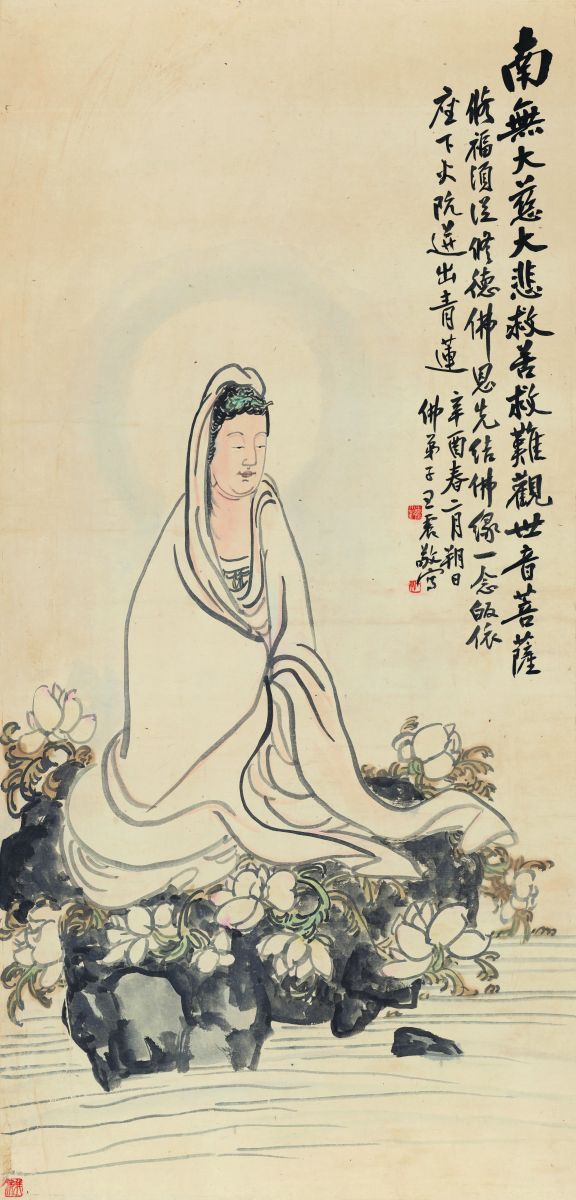 南無大慈大悲救苦救難觀世音菩薩
修福須從修德佛恩先結佛緣一念皈依
座下火阬迸出青蓮
辛酉春二月朔日
佛弟子王震敬寫